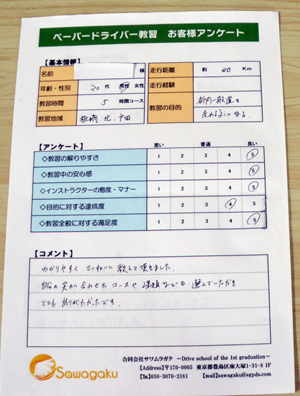 ペーパードライバー教習 お客様アンケート
【基本情報】
名前 様 走行距離 約 40 Km
年齢・性別 20 代 男性 女性 走行経験
教習時間 5 時間コース 教習の目的 都内一般道を
教習地域 板橋 北 戸田
【アンケート】 悪い 普通 良い
◇教習の解りやすさ 1 2 3 4 5
◇教習中の安心感 1 2 3 4 5
◇インストラクターの態度・マナー 1 2 3 4 5
◇目的に対する達成度 1 2 3 4 5
◇教習全般に対する満足度 1 2 3 4 5
【コメント】
わかりやすく ていねいに 教えて頂きました。
コースや 選んでいただき
とても ありがたかったです。
Sawagaku
合同会社サワムラガク ~Drive school of the 1st graduation~
【Address】〒170-0005 東京都豊島区南大塚1-31-8 1F
【Tel】050-3078-2181 【Mail】sawagaku@sgpds.com